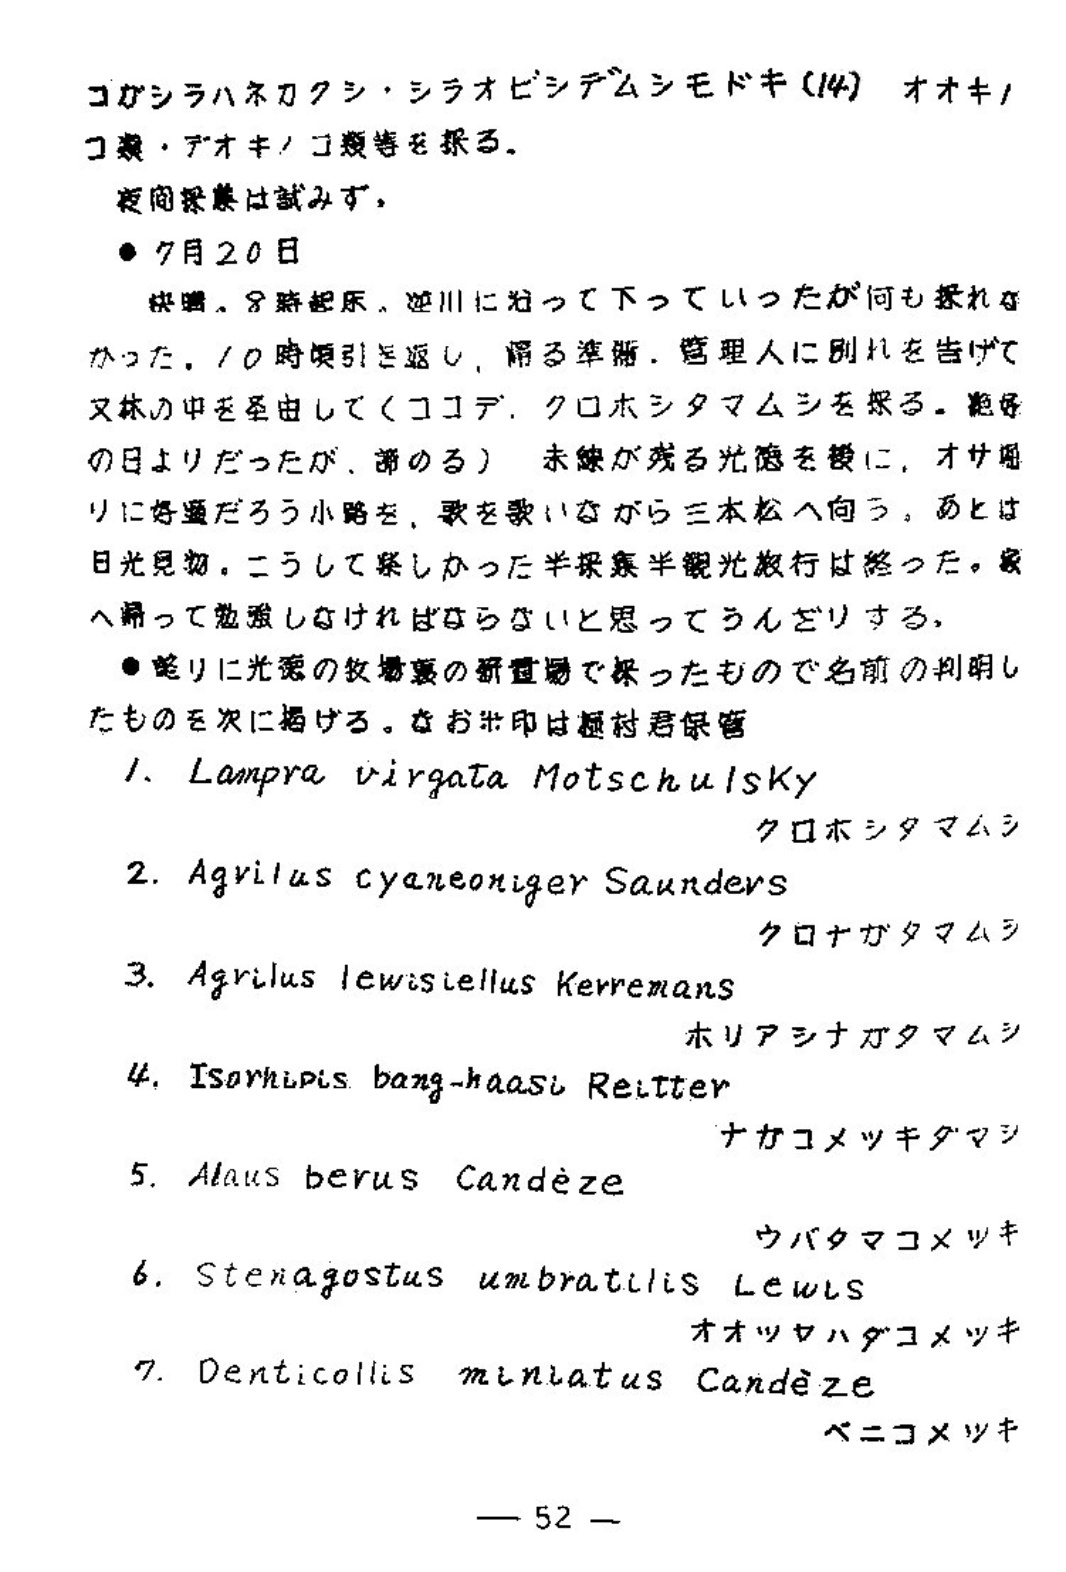 コガシラハネカクシ・シラオビシデムシモドキ(14) オオキノ
コ類・デオキノコ類等を採る。
夜間採集は試みず。
● 7月20日
快晴。8時起床。逆川に沿って下っていったが何も採れな
かった。10時頃引き返し、帰る準備.管理人に別れを告げて
又林の中を圣由してくココデ.クロホシタマムシを採る。絶好
の日よりだったが、諦める) 未練が残る光徳を後に、オサ堀
りに好適だろう小路を、歌を歌いながら三本松へ向う。あとは
日光見物。こうして楽しかった半採集半観光旅行は終った。家
へ帰って勉強しなければならないと思ってうんざりする。
● 終りに光徳の牧場裏の貯置場で採ったもので名前の判明し
たものを次に掲げる。なお※印は植村君保管
1. Lampra virgata Motschulsky
クロホシタマムシ
2. Agrilus cyaneoniger Saunders
クロナガタマムシ
3. Agrilus lewisiellus Kerremans
ホリアシナガタマムシ
4. Isorhipis bang-haasi Reitter
ナガコメツキダマシ
5. Alaus berus Candèze
ウバタマコメツキ
6. Stenagostus umbratilis Lewis
オオツヤハダコメツキ
7. Denticollis miniatus Candèze
ベニコメツキ
— 52 —